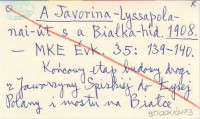 A Javorina-Lyssapola-
nai-út s a Bialka-híd. 1908.
— MKE Évk. 35: 139-140.
Końcowy etap budowy drogi
z Jaworzyny Spiskiej do Łysej
Polany i mostu na Białce.